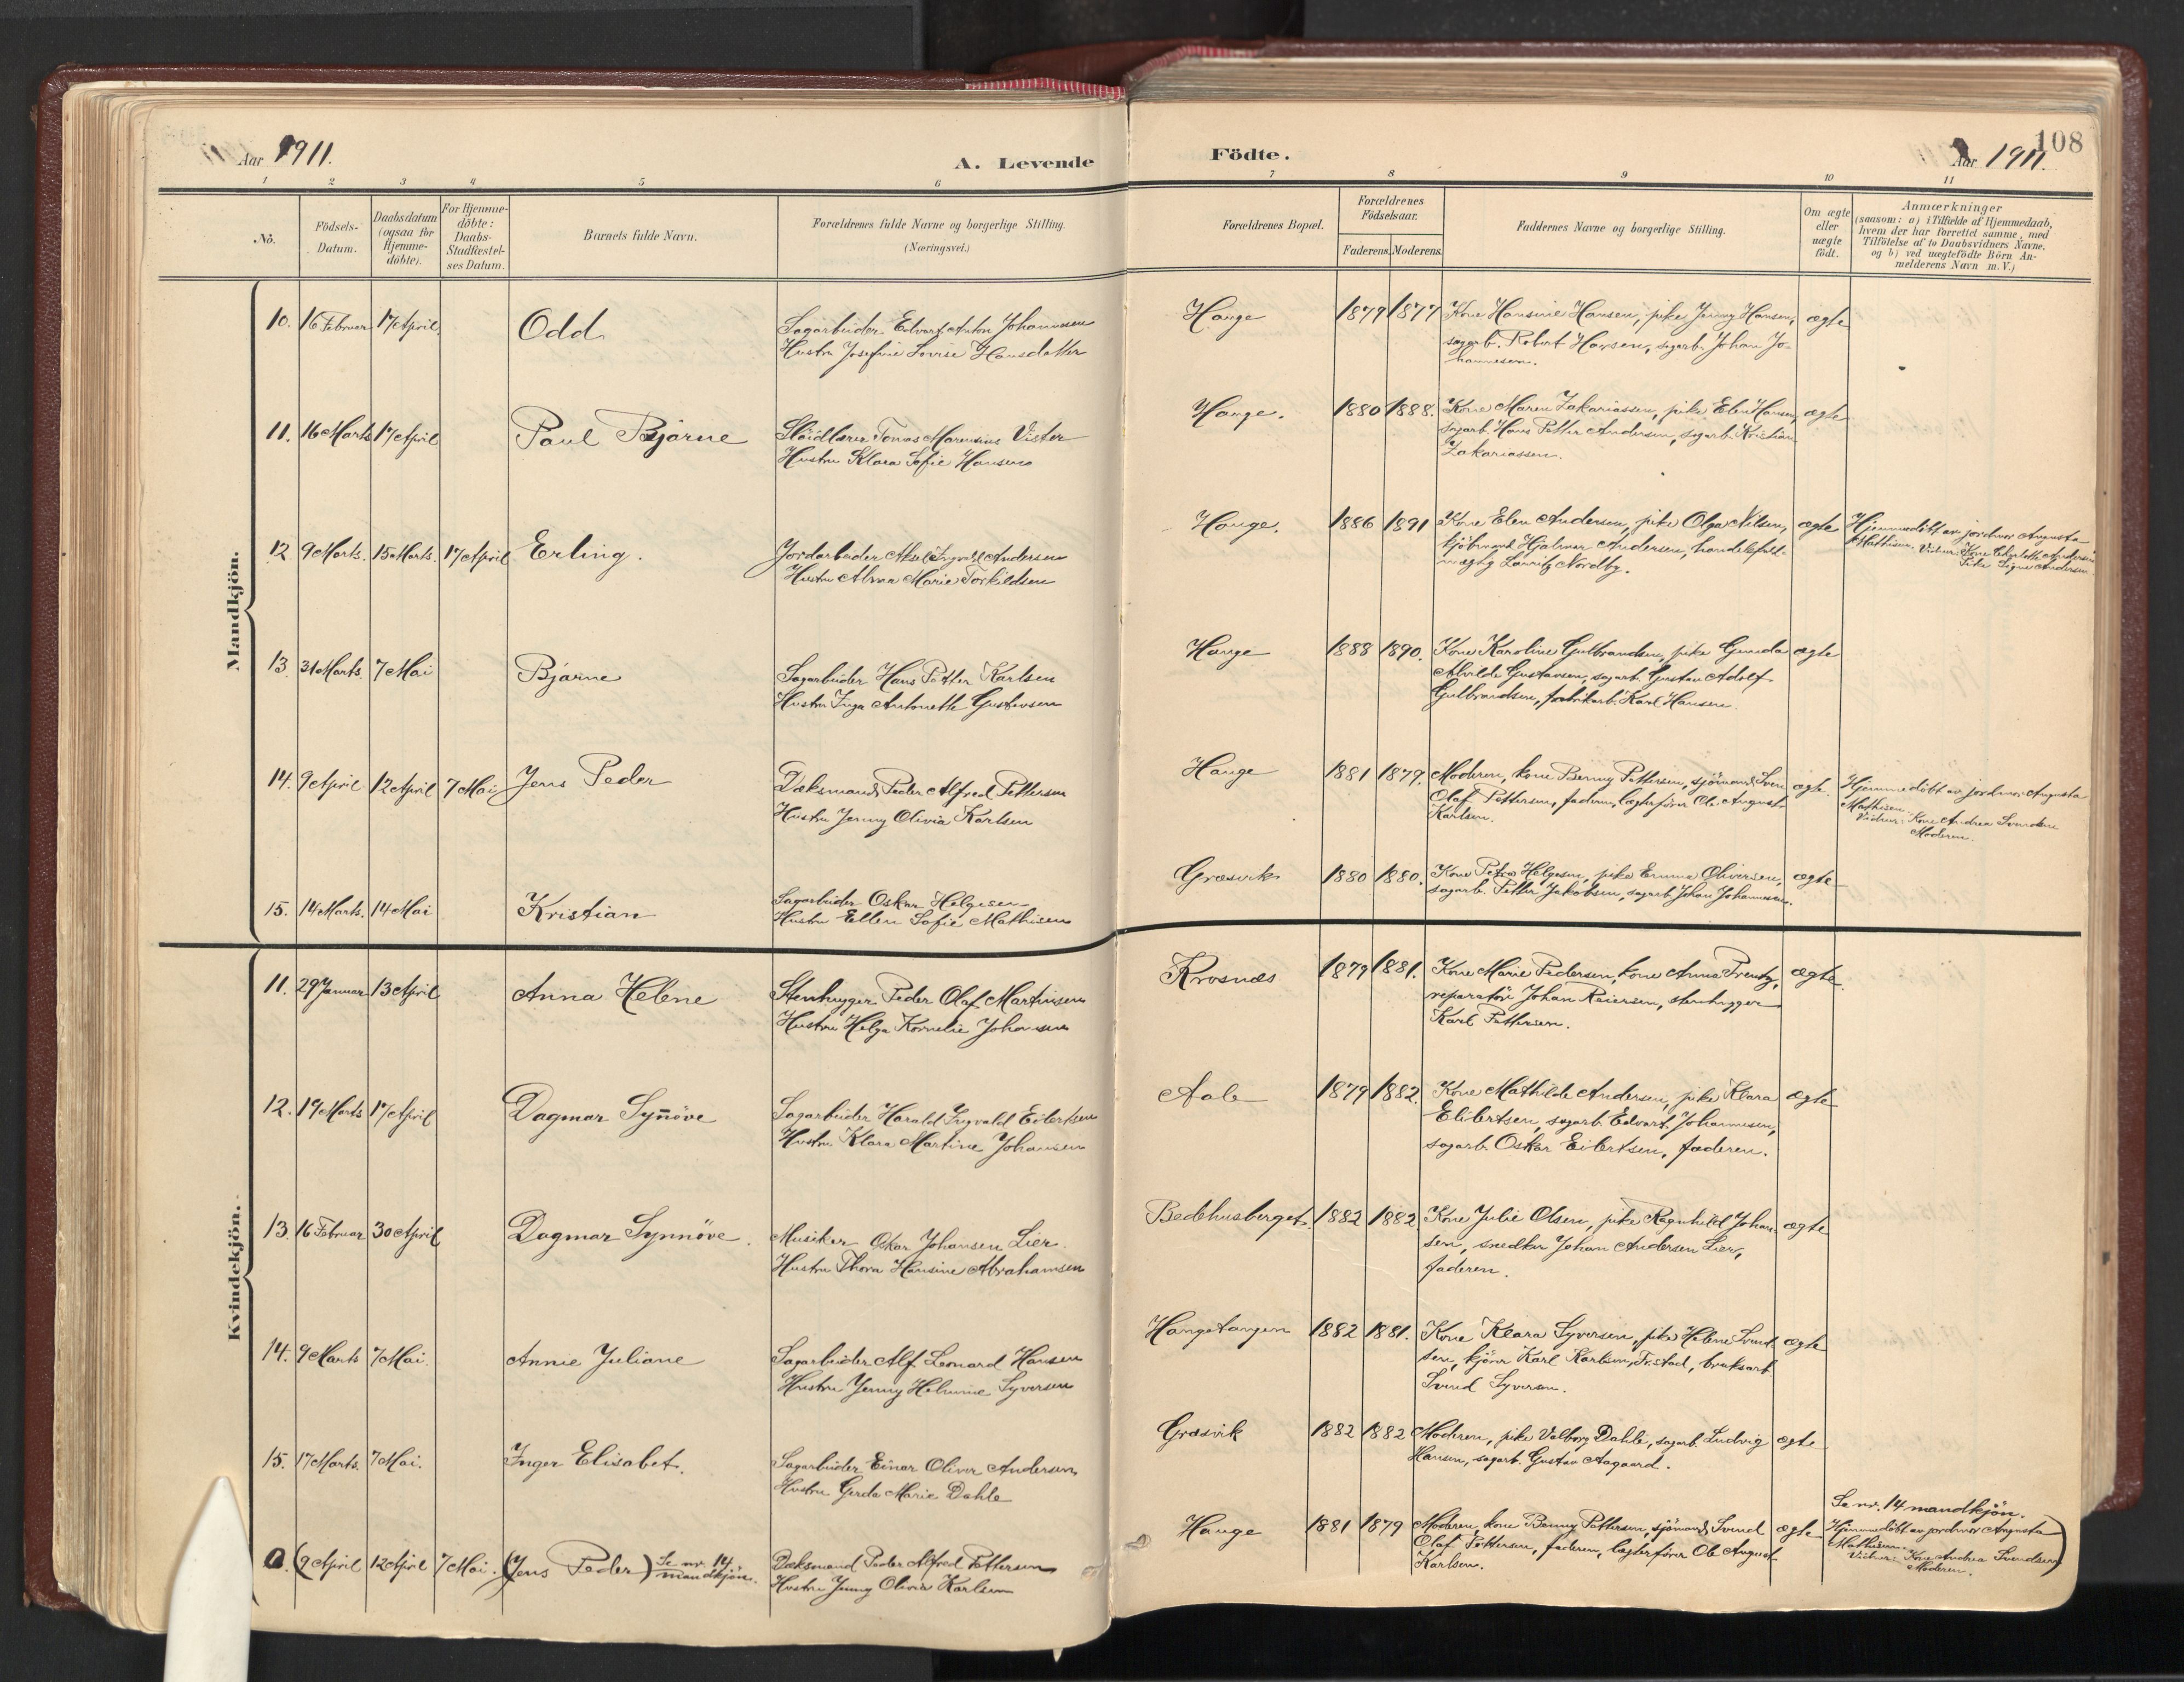 Aar 1911.
A. Levende Födte.
Aar 1911.
108
1 2 3 4 5 6 7 8 9 10 11
No.
Födsels-
Datum.
Daabsdatum
(ogsaa for
Hjemme-
döbte).
For Hjemme-
döbte:
Daabs-
Stadfæstel-
ses Datum.
Barnets fulde Navn.
Forældrenes fulde Navne og borgerlige Stilling.
(Næringsvei.)
Forældrenes Bopæl.
Forældrenes
Födselsaar.
Faderens. Moderens.
Faddernes Navne og borgerlige Stilling.
Om ægte
eller
uægte
födt.
Anmærkninger
(saasom: a) i Tilfælde af Hjemmedaab,
hvem der har forrettet samme, med
Tilföielse af to Daabsvidners Navne,
og b) ved uægtefödte Börn An-
melderens Navn m.V.)
Mandkjön.
10. 16 Februar 17 April. Odd
Sagarbeider Edvart Anton Johannesen
Hustru Josefine Lovise Hansdatter
Hauge 1879 1877
Kone Hansine Hansen, pike Jenny Hansen,
sagarb. Robert Hansen, sagarb. Johan Jo-
hannesen.
ægte
11. 16 Marts 17 April Paul Bjarne
Slöidlærer Tomas Marensius Vister
Hustru Klara Sofie Hansen
Hauge. 1880 1888.
Kone Maren Zakariassen, pike Elen Hansen,
sagarb. Hans Petter Andersen, sagarb. Kristian
Zakariassen.
ægte
12 9 Marts. 15 Marts. 17 April Erling.
Jordarbeider Aksel Ingvald Andersen
Hustru Alvar Marie Torkildsen
Hauge. 1886 1891
Kone Elen Andersen, pike Olga Nilsen,
kjöbmand Hjalmar Andersen, handelsfuld-
mægtig Lauritz Nordby.
ægte
Hjemmedöbt av jordmor Augusta
Mathisen. Vidner: Kone Charlotte Andersen
Pike Signe Andersen
13 31 Marts. 7 Mai Bjarne
Sagarbeider Hans Petter Karlsen
Hustru Inga Antonette Gustavsen
Hauge 1888 1890.
Kone Karoline Gulbrandsen, pike Gunda
Alvilde Gustavsen, sagarb. Gustav Adolf
Gulbrandsen, fabrikarb. Karl Hansen.
ægte
14. 9 April 12 April 7 Mai Jens Peder
Dæksmand Peder Alfred Pettersen
Hustru Jenny Olivia Karlsen
Hauge 1881 1879.
Moderen, kone Benny Pettersen, sjömand Sven
Olaf Pettersen, faderen, lægterförer Ole August
Karlsen.
ægte.
Hjemmedöbt av jordmor Augusta
Mathisen.
Vidner: Kone Andrea Svendsen
Moderen.
15. 14 Marts. 14 Mai Kristian
Sagarbeider Oskar Helgesen
Hustru Ellen Sofie Mathisen
Græsvik 1880 1880.
Kone Petra Helgesen, pike Emma Oliversen,
sagarb. Petter Jakobsen, sagarb. Johan Johannesen.
ægte
Kvindekjön.
11. 29 Januar 13 April Anna Helene
Stenhugger Peder Olaf Martinsen
Hustru Helga Kornelie Johansen
Krosnæs 1879 1881.
Kone Marie Pedersen, kone Anna Frentz,
reparatör Johan Reiersen, stenhugger
Karl Pettersen.
ægte.
12. 19 Marts 17 April Dagmar Synöve
Sagarbeider Harald Ingvald Eilertsen
Hustru Klara Martine Johansen
Aale 1879 1882.
Kone Mathilde Andersen, pike Klara
Eilertsen, sagarb. Edvart Johannesen,
sagarb. Oskar Eilertsen, faderen.
ægte
13. 16 Februar 30 April Dagmar Synnöve.
Musiker Oskar Johansen Lier.
Hustru Thora Hansine Abrahamsen
Bedehusberget. 1882 1882.
Kone Julie Olsen, pike Ragnhild Johan-
sen, snedker Johan Andersen Lier,
faderen.
ægte
14. 9 Marts 7 Mai. Annie Juliane
Sagarbeider Alf Leonard Hansen
Hustru Jenny Helmine Syversen
Haugetangen 1882 1881.
Kone Klara Syversen, pike Helene Svend-
sen, kjörer Karl Karlsen, Fr.stad, bruksarb.
Svend Syversen.
ægte
15. 17 Marts. 7 Mai. Inger Elisabet.
Sagarbeider Einar Oliver Andersen
Hustru Gerda Marie Dahle
Græsvik 1882 1882
Moderen, pike Valborg Dahle, sagarb. Ludvig
Hansen, sagarb. Gustav Aagaard.
ægte
0. (9 April 12 April 7 Mai. (Jens Peder) Se nr. 14
mandkjön.
Dæksmand Peder Alfred Pettersen
Hustru Jenny Olivia Karlsen
Hauge 1881 1879
Moderen, kone Benny Pettersen, sjömand Svend
Olaf Pettersen, faderen, lægterförer Ole August
Karlsen.
ægte
Se nr. 14 mandkjön.
Hjemmedöbt av jordmor Augusta
Mathisen.
Vidner: Kone Andrea Svendsen)
Moderen.